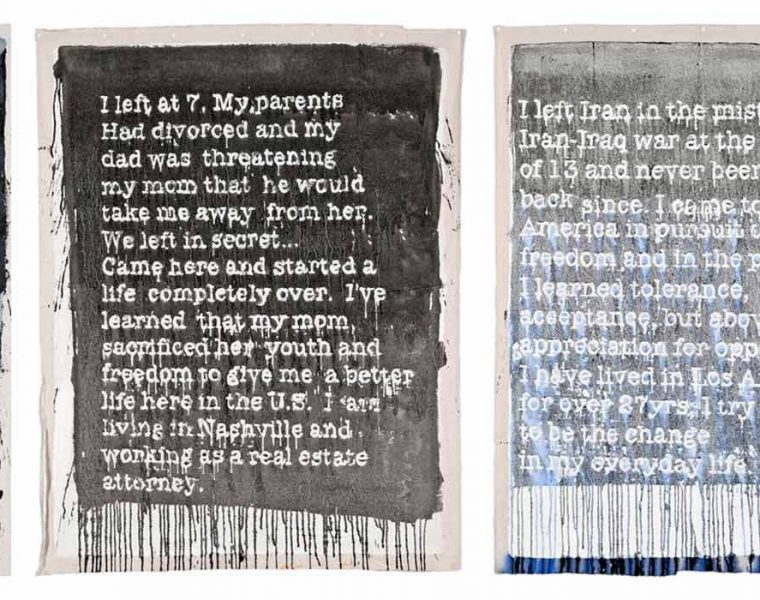 I left at 7. My parents
Had divorced and my
dad was threatening
my mom that he would
take me away from her.
We left in secret...
Came here and started a
life completely over. I've
learned that my mom
sacrificed her youth and
freedom to give me a better
life here in the U.S. I am
living in Nashville and
working as a real estate
attorney.
I left Iran in the mist
Iran-Iraq war at the
of 13 and never been
back since. I came to
America in pursuit
freedom and in the
I learned tolerance,
acceptance, but
appreciation for
I have lived in Los
for over 27yrs, I try
to be the change
in my everyday life.